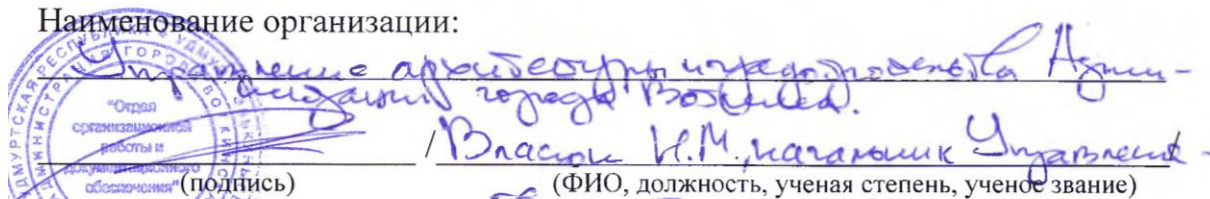 Наименование организации:
Управление архитектуры и градостроительства Админи-
страции города Воткинска.
"Отдел
организационной
работы и
документационного
обеспечения"
/ Власов И.М., начальник Управления -
(подпись) (ФИО, должность, ученая степень, ученое звание)